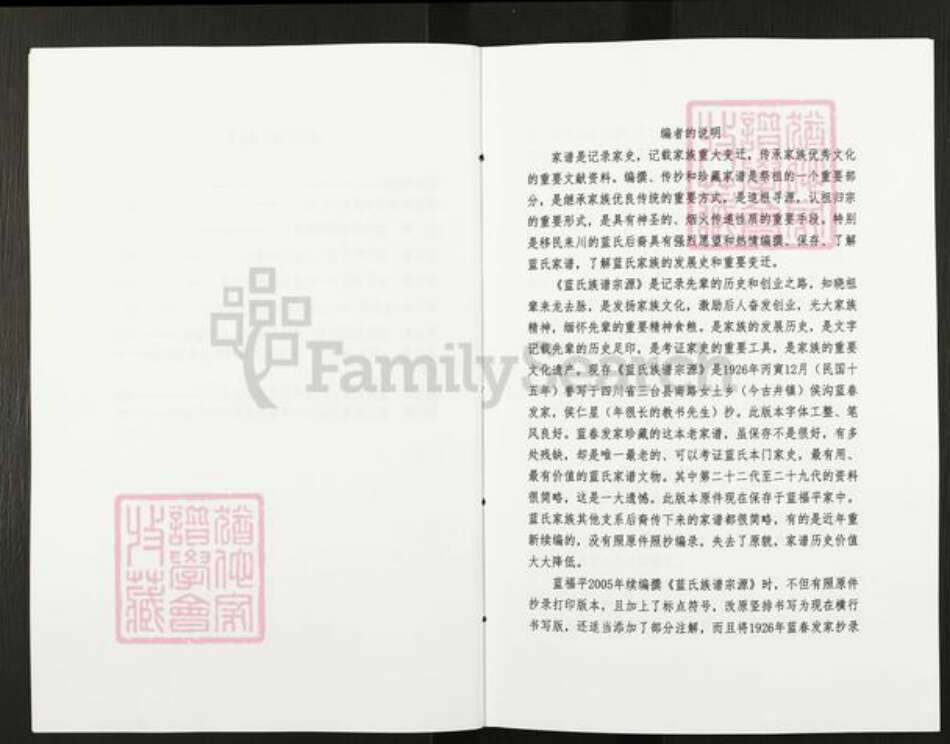 编者的说明
家谱是记录家史，记载家族重大变迁，传承家族优秀文化
的重要文献资料。编撰、传抄和珍藏家谱是祭祖的一个重要部
分，是继承家族优良传统的重要方式，是追根寻源，认祖归宗
的重要形式，是具有神圣的、烟火传递性质的重要手段。特别
是移民来川的蓝氏后裔具有强烈愿望和热情编撰、保存、了解
蓝氏家谱，了解蓝氏家族的发展史和重要变迁。
《蓝氏族谱宗源》是记录先辈的历史和创业之路，知晓祖
辈来龙去脉，是发扬家族文化，激励后人奋发创业，光大家族
精神，缅怀先辈的重要精神食粮。是家族的发展历史，是文字
记载先辈的历史足印，是考证家史的重要工具，是家族的重要
文化遗产。现存《蓝氏族谱宗源》是1926年丙寅12月（民国十
五年）誊写于四川省三台县南路女土乡（今古井镇）侯沟蓝春
发家，侯仁星（年很长的教书先生）抄。此版本字体工整、笔
风良好。蓝春发家珍藏的这本老家谱，虽保存不是很好，有多
处残缺，却是唯一最老的、可以考证蓝氏本门家史，最有用、
最有价值的蓝氏家谱文物。其中第二十二代至二十九代的资料
很简略，这是一大遗憾。此版本原件现在保存于蓝福平家中。
蓝氏家族其他支系后裔传下来的家谱都很简略，有的是近年重
新续编的，没有照原件照抄编录，失去了原貌，家谱历史价值
大大降低。
蓝福平2005年续编撰《蓝氏族谱宗源》时，不但有照原件
抄录打印版本，且加上了标点符号，改原竖排书写为现在横行
书写版，还适当添加了部分注解，而且将1926年蓝春发家抄录
FamilySearch
犹他家
谱学会
收藏
犹他家
谱学会
收藏